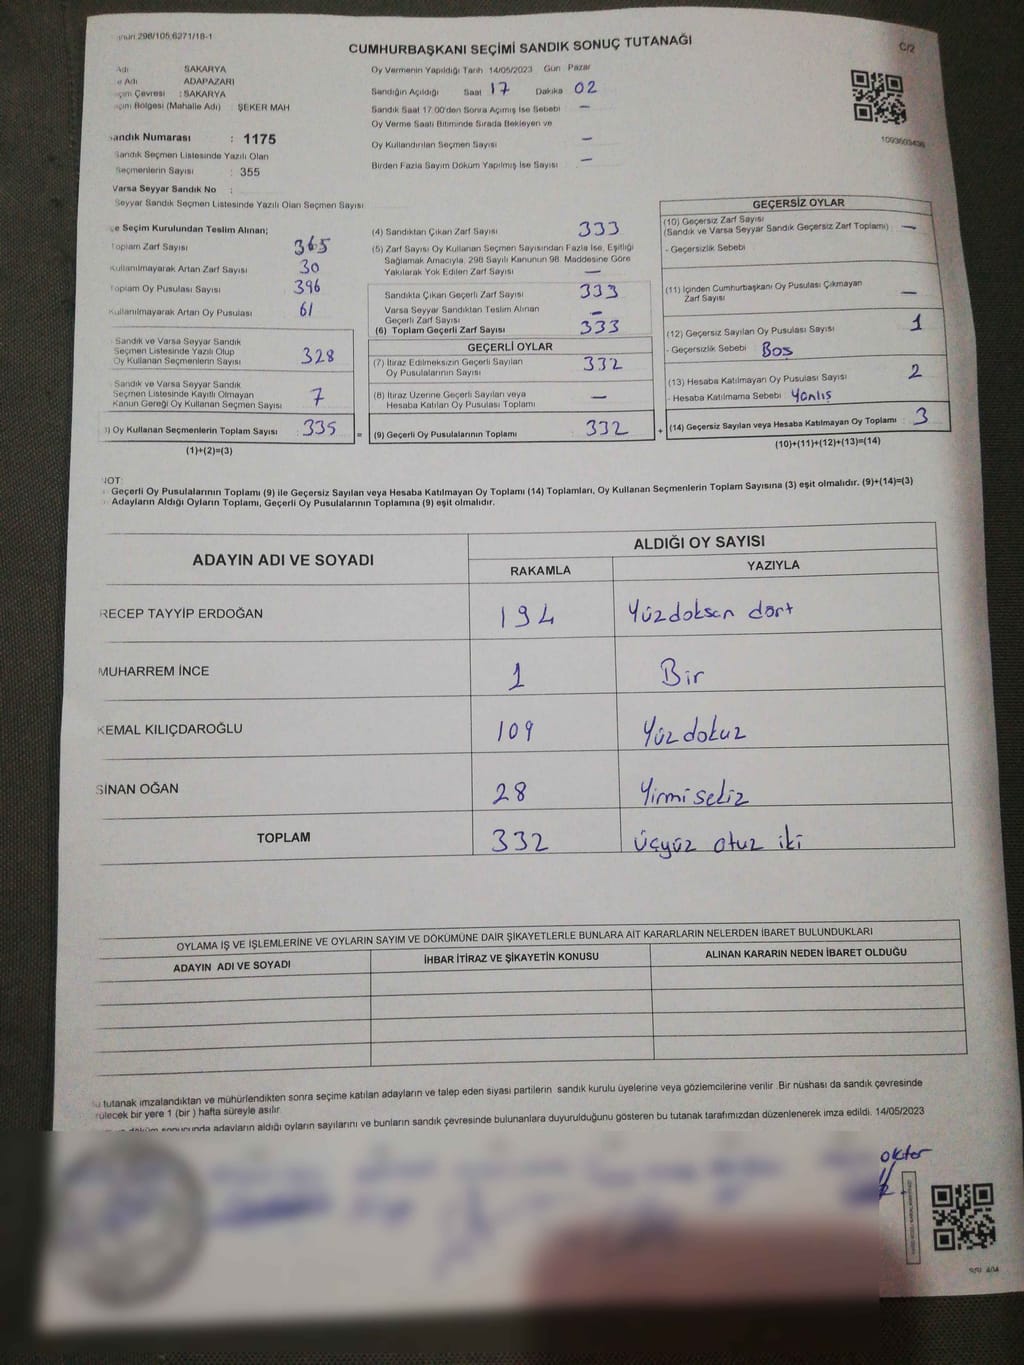 CUMHURBAŞKANI SEÇİMİ SANDIK SONUÇ TUTANAĞI
C/2
Adı SAKARYA
e Adı ADAPAZARI
çim Çevresi : SAKARYA
çim Bölgesi (Mahalle Adı) : ŞEKER MAH
andık Numarası : 1175
Sandık Seçmen Listesinde Yazılı Olan
Seçmenlerin Sayısı : 355
Varsa Seyyar Sandık No :
Seyyar Sandık Seçmen Listesinde Yazılı Olan Seçmen Sayısı
Oy Vermenin Yapıldığı Tarih 14/05/2023 Gün Pazar
Sandığın Açıldığı Saat 17 Dakika 02
Sandık Saat 17.00'den Sonra Açımış İse Sebebi —
Oy Verme Saati Bitiminde Sırada Bekleyen ve
Oy Kullandırılan Seçmen Sayısı —
Birden Fazla Sayım Döküm Yapılmış İse Sayısı —
e Seçim Kurulundan Teslim Alınan;
Toplam Zarf Sayısı 365
Kullanılmayarak Artan Zarf Sayısı 30
Toplam Oy Pusulası Sayısı 396
Kullanılmayarak Artan Oy Pusulası 61
Sandık ve Varsa Seyyar Sandık
Seçmen Listesinde Yazılı Olup
Oy Kullanan Seçmenlerin Sayısı 328
Sandık ve Varsa Seyyar Sandık
Seçmen Listesinde Kayıtlı Olmayan
Kanun Gereği Oy Kullanan Seçmen Sayısı 7
) Oy Kullanan Seçmenlerin Toplam Sayısı : 335
(1)+(2)=(3)
(4) Sandıktan Çıkan Zarf Sayısı 333
(5) Zarf Sayısı Oy Kullanan Seçmen Sayısından Fazla İse, Eşitliği
Sağlamak Amacıyla, 298 Sayılı Kanunun 98. Maddesine Göre
Yakılarak Yok Edilen Zarf Sayısı —
Sandıkta Çıkan Geçerli Zarf Sayısı 333
Varsa Seyyar Sandıktan Teslim Alınan
Geçerli Zarf Sayısı —
(6) Toplam Geçerli Zarf Sayısı 333
GEÇERLİ OYLAR
(7) İtiraz Edilmeksizin Geçerli Sayılan
Oy Pusulalarının Sayısı 332
(8) İtiraz Üzerine Geçerli Sayılan veya
Hesaba Katılan Oy Pusulası Toplamı —
= (9) Geçerli Oy Pusulalarının Toplamı : 332
GEÇERSİZ OYLAR
(10) Geçersiz Zarf Sayısı
(Sandık ve Varsa Seyyar Sandık Geçersiz Zarf Toplamı) —
- Geçersizlik Sebebi
(11) İçinden Cumhurbaşkanı Oy Pusulası Çıkmayan
Zarf Sayısı —
(12) Geçersiz Sayılan Oy Pusulası Sayısı 1
- Geçersizlik Sebebi Boş
(13) Hesaba Katılmayan Oy Pusulası Sayısı 2
- Hesaba Katılmama Sebebi Yanlış
+ (14) Geçersiz Sayılan veya Hesaba Katılmayan Oy Toplamı : 3
(10)+(11)+(12)+(13)=(14)
NOT:
Geçerli Oy Pusulalarının Toplamı (9) ile Geçersiz Sayılan veya Hesaba Katılmayan Oy Toplamı (14) Toplamları, Oy Kullanan Seçmenlerin Toplam Sayısına (3) eşit olmalıdır. (9)+(14)=(3)
Adayların Aldığı Oyların Toplamı, Geçerli Oy Pusulalarının Toplamına (9) eşit olmalıdır.
ADAYIN ADI VE SOYADI
ALDIĞI OY SAYISI
RAKAMLA YAZIYLA
RECEP TAYYİP ERDOĞAN 194 Yüzdoksan dört
MUHARREM İNCE 1 Bir
KEMAL KILIÇDAROĞLU 109 Yüzdokuz
SİNAN OĞAN 28 Yirmisekiz
TOPLAM 332 üçyüz otuz iki
OYLAMA İŞ VE İŞLEMLERİNE VE OYLARIN SAYIM VE DÖKÜMÜNE DAİR ŞİKAYETLERLE BUNLARA AİT KARARLARIN NELERDEN İBARET BULUNDUKLARI
ADAYIN ADI VE SOYADI İHBAR İTİRAZ VE ŞİKAYETİN KONUSU ALINAN KARARIN NEDEN İBARET OLDUĞU
tutanak imzalandıktan ve mühürlendikten sonra seçime katılan adayların ve talep eden siyasi partilerin sandık kurulu üyelerine veya gözlemcilerine verilir. Bir nüshası da sandık çevresinde
rülecek bir yere 1 (bir ) hafta süreyle asılır.
sonucunda adayların aldığı oyların sayılarını ve bunların sandık çevresinde bulunanlara duyurulduğunu gösteren bu tutanak tarafımızdan düzenlenerek imza edildi. 14/05/2023